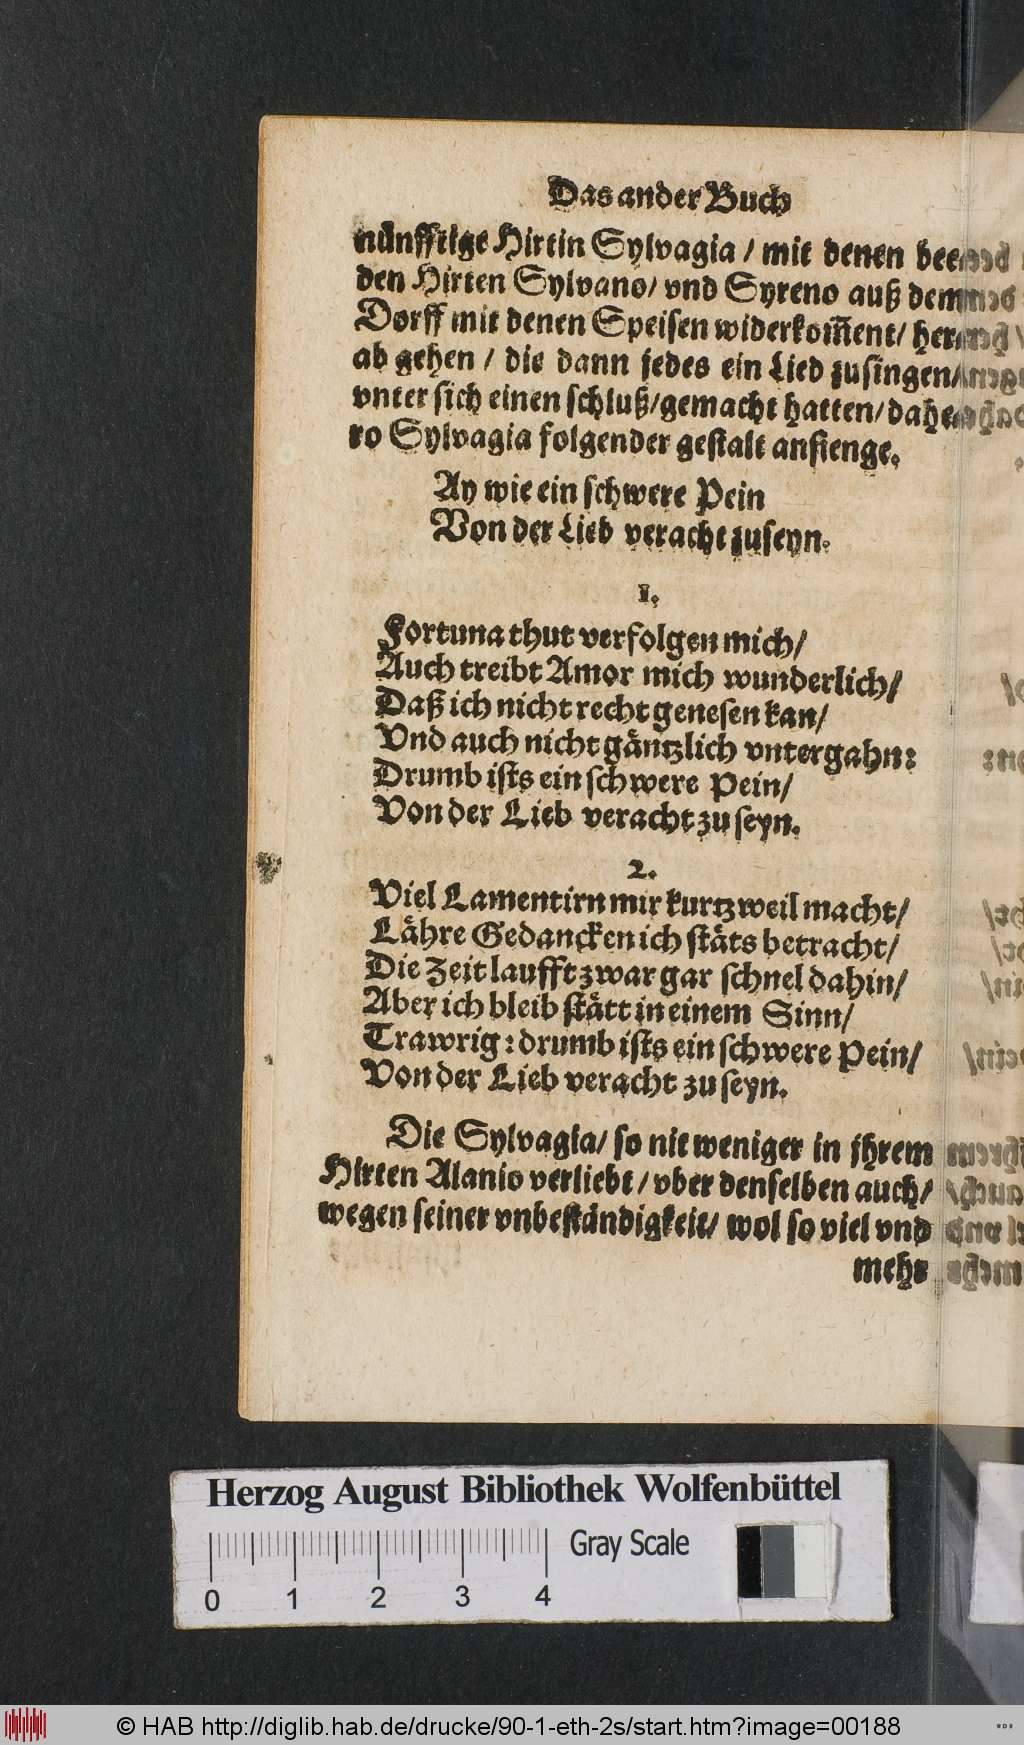 Das ander Buch
nünfftige Hirtin Sylvagia / mit denen bee-
den Hirten Sylvano / vnd Syreno auß dem
Dorff mit denen Speisen widerkom̃ent / her-
ab gehen / die dann jedes ein Lied zusingen /
vnter sich einen schluß / gemacht hatten / dahe-
ro Sylvagia folgender gestalt anfienge.
Ay wie ein schwere Pein
Von der Lieb veracht zuseyn.
1.
Fortuna thut verfolgen mich /
Auch treibt Amor mich wunderlich /
Daß ich nicht recht genesen kan /
Vnd auch nicht gäntzlich vntergahn:
Drumb ists ein schwere Pein /
Von der Lieb veracht zu seyn.
2.
Viel Lamentirn mir kurtzweil macht /
Lähre Gedancken ich stäts betracht /
Die Zeit laufft zwar gar schnel dahin /
Aber ich bleib stätt in einem Sinn /
Trawrig: drumb ists ein schwere Pein /
Von der Lieb veracht zu seyn.
Die Sylvagia / so nit weniger in jhrem
Hirten Alanio verliebt / vber denselben auch /
wegen seiner vnbeständigkeit / wol so viel vnd
mehr
Herzog August Bibliothek Wolfenbüttel
Gray Scale
0 1 2 3 4
© HAB http://diglib.hab.de/drucke/90-1-eth-2s/start.htm?image=00188